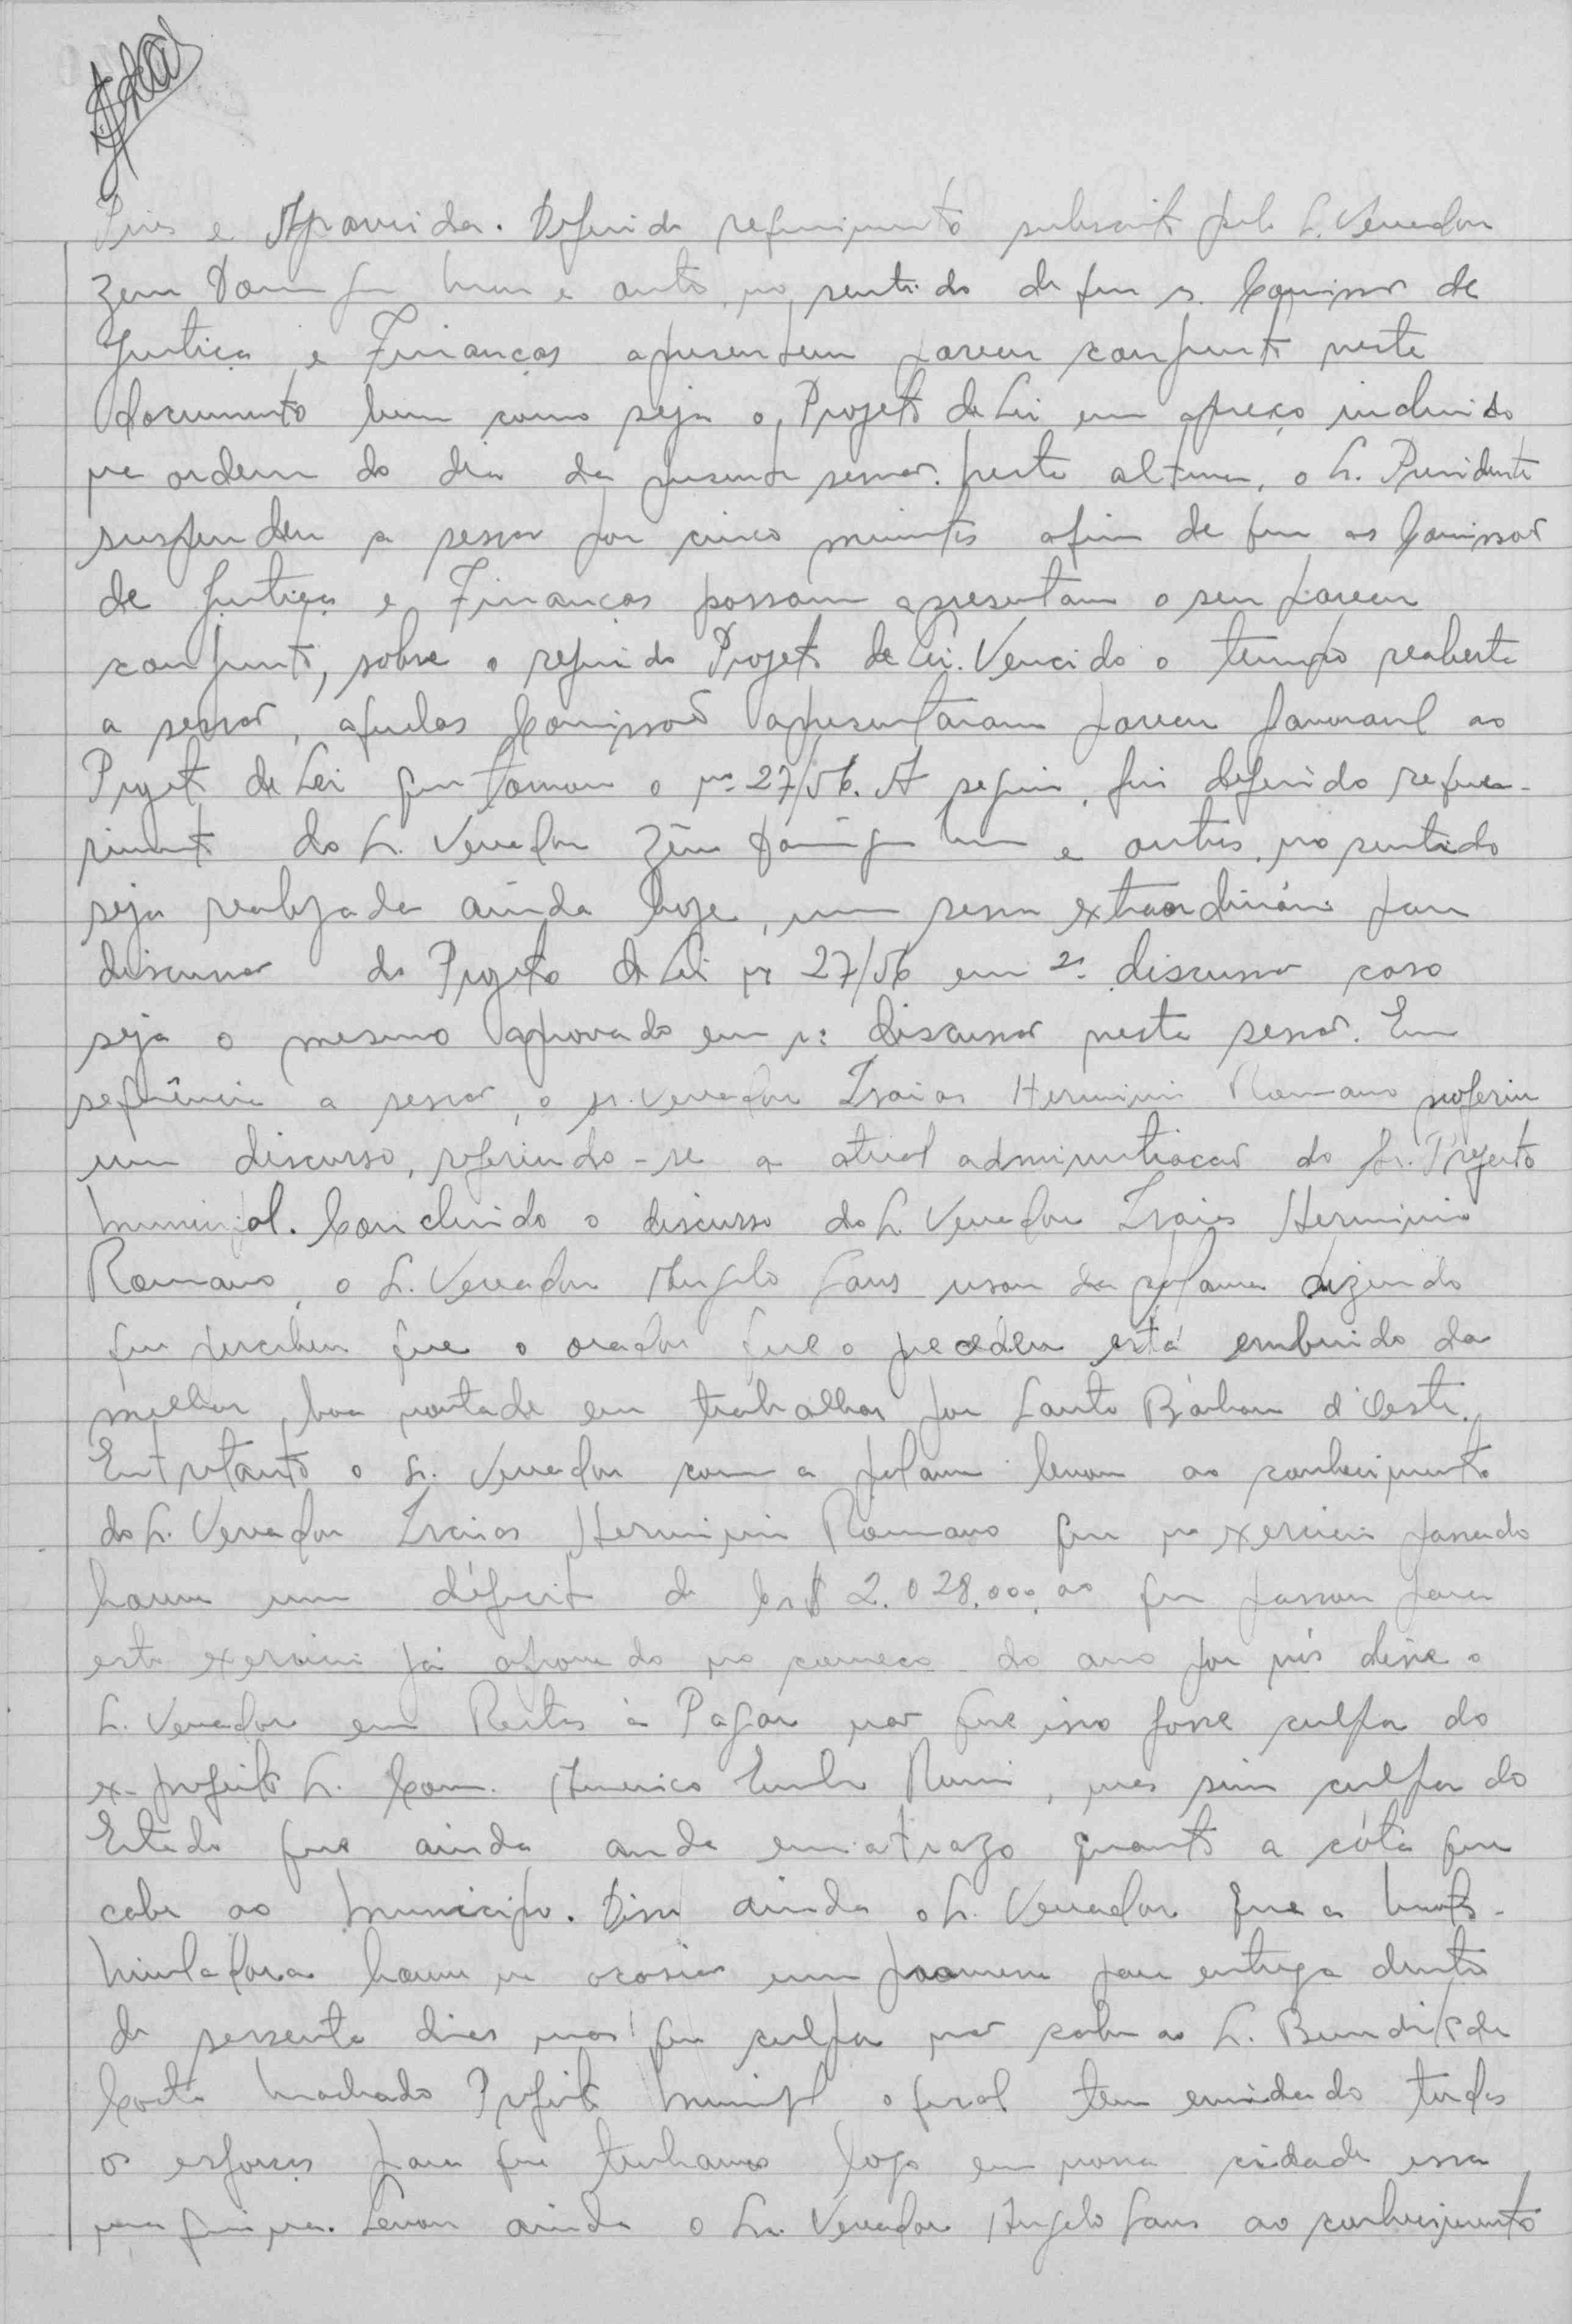 Pires e Aparecida. Deferido requerimento subscrito pelo Sr. Vereador
e outros, no sentido de que as Comissões de
Justiça e Finanças apresentem parecer conjunto neste
documento bem como seja o Projeto de Lei em apreço incluido
na ordem do dia da presente sessão. Nesta altura, o Sr. Presidente
suspendeu a sessão por cinco minutos afim de que as Comissões
de Justiça e Finanças possam apresentam o seu parecer
conjunto, sobre o referido Projeto de Lei. Vencido o tempo reaberta
a sessão, aquelas Comissões apresentaram parecer favoravel ao
Projeto de Lei que tomou o nº 27/56. A seguir, foi deferido reque-
rimento do Sr. Vereador e outros, no sentido
seja realizada ainda hoje, uma sessão extraordinária para
discussão do Projeto de Lei nº 27/56 em 2ª discussão caso
seja o mesmo aprovado em 1ª discussão nesta sessão. Em
sequência a sessão, o sr. vereador Isaias Herminio Romano proferiu
um discurso, referindo-se a atual administração do Sr. Prefeito
Municipal. Concluido o discurso do Sr. Vereador Isaias Herminio
Romano, o Sr. Vereador Angelo Sans usou da palavra dizendo
que percebeu que o orador que o precedeu está embuido da
melhor boa vontade em trabalhar por Santa Bárbara d'Oeste.
Entretanto o Sr. Vereador com a palavra levou ao conhecimento
do Sr. Vereador Isaias Herminio Romano que no exercicio passado
houve um déficit de Cr$ 2.028.000,00 que passou para
este exercicio já aprovado no começo do ano por nós disse o
Sr. Vereador em Restos à Pagar não que isso fosse culpa do
ex-prefeito Sr. Com. Americo Emilio Romi, mas sim culpa do
Estado que ainda anda em atrazo quanto a cóta que
cabe ao Municipio. Disse ainda o Sr. Vereador que a Moto-
niveladora houve na ocasião uma promessa para entrega dentro
de sessenta dias mas que culpa não cabe ao Sr. Benedito de
Costa Machado Prefeito Municipal o qual tem envidado todos
os esforços para que tenhamos logo em nossa cidade essa
maquina. Levou ainda o Sr. Vereador Angelo Sans ao conhecimento